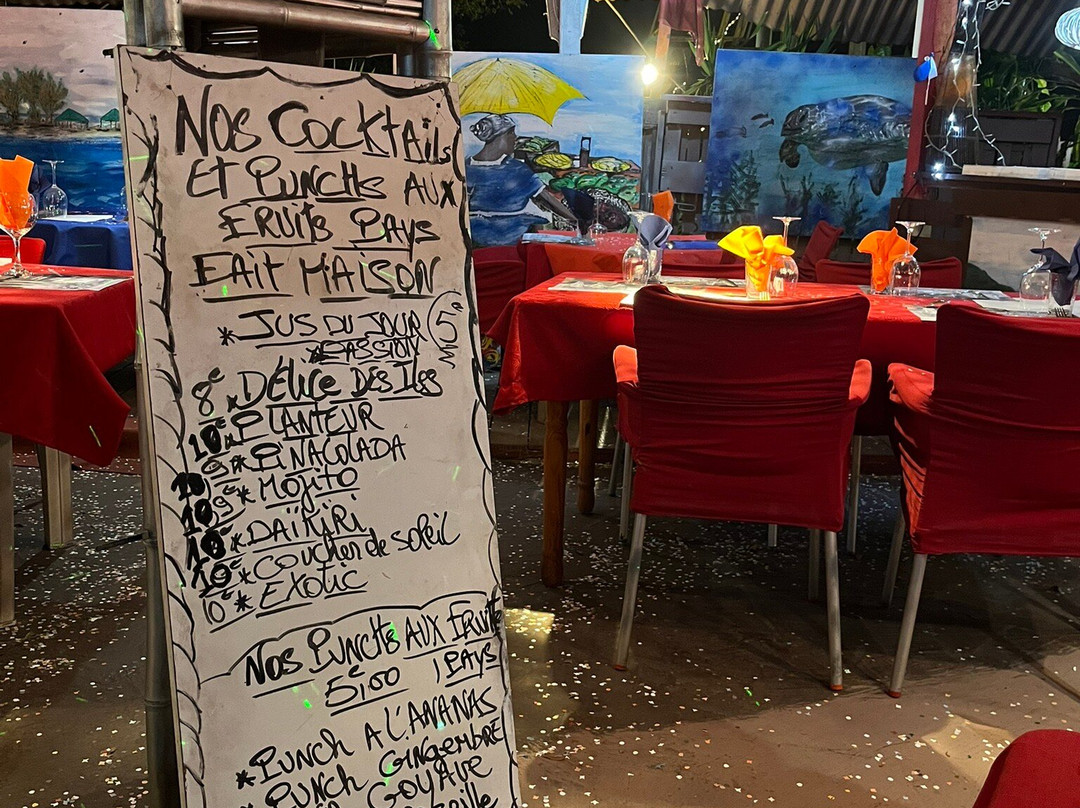 Nos Cocktails
Et Punchs aux
Fruits Pays
Fait Maison
* Jus du Jour 5€
* Passion
8€ * Délice des Iles
10€ * Planteur
* Pinacolada
* Mojito
10€ * Daïkiri
10€ * Coucher de soleil
10€ * Exotic
Nos Punchs aux Fruits
5€00 Pays
* Punch A l'Ananas
* Punch Gingembre
Goyave